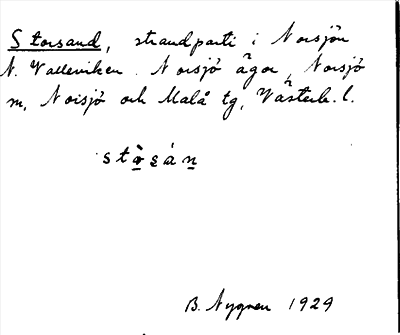 Storsand, strandparti i Norsjön
N. Valleviken. Norsjö ägor, Norsjö
m, Norsjö och Malå tg, Västerb. l.
stò̱s̱áṉ
B. Nygren 1929